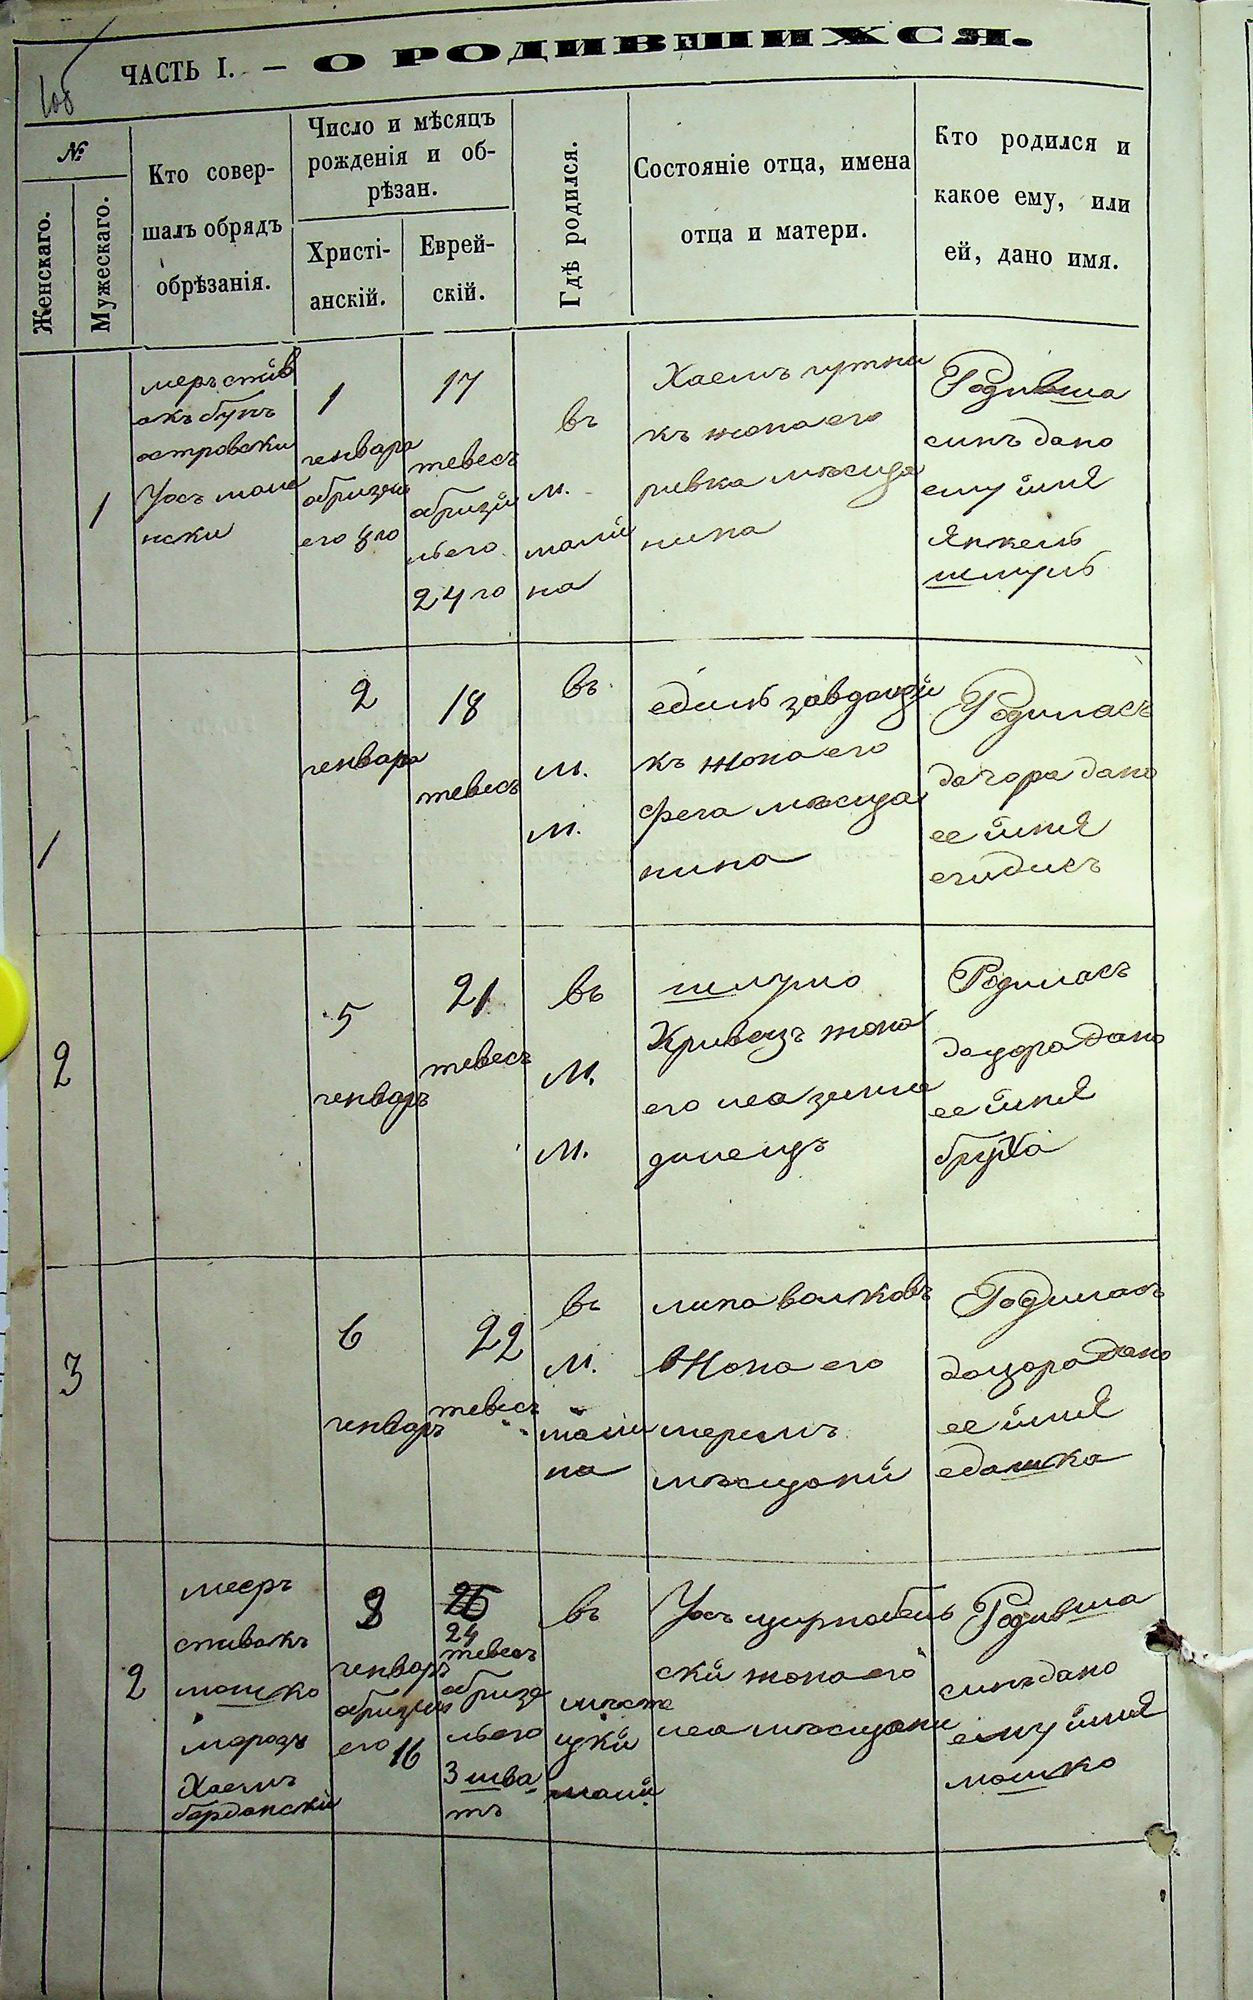 ЧАСТЬ I. — О РОДИВШИХСЯ.
№
Женскаго.
Мужескаго.
Кто совер-
шалъ обрядъ
обрѣзанія.
Число и мѣсяцъ
рожденія и об-
рѣзан.
Христі-
анскій.
Еврей-
скій.
Гдѣ родился.
Состояніе отца, имена
отца и матери.
Кто родился и
какое ему, или
ей, дано имя.
1
меръ спив
акъ бунъ
островски
Уосъ мале
нски
1
генвара
его 8го
17
тевесъ
обризаи
льего
24го
въ
м.
мали
на
Хаемъ гутни
къ жона его
ривка мѣсща
нина
Родивша
синъ дано
ему імня
Янкель
шмуль
1
2
генвара
18
тевесъ
въ
м.
м.
къ жона его
фега мѣсща
нина
Родиласъ
дочора дано
ее імня
2
5
генваръ
21
тевесъ
въ
м.
м.
шлумо
Кривецъ жона
его леа земле
дилецъ
Родиласъ
доцора дано
ее імня
бруха
3
6
генваръ
22
тевесъ
въ
м.
мали
на
липа волковъ
жона его
меримъ
мѣсщани
Родилась
доцора дано
ее імня
едашка
2
мееръ
спивакъ
мошко
марозъ
Хаемъ
барданскій
генваръ
его 16
24
тевесъ
обриза
льего
3 шва-
тъ
въ
мѣсте
цки
мали
Уосъ цирнобель
ски жона его
леа мѣсщани
Родивша
синъ дано
ему імня
мошко